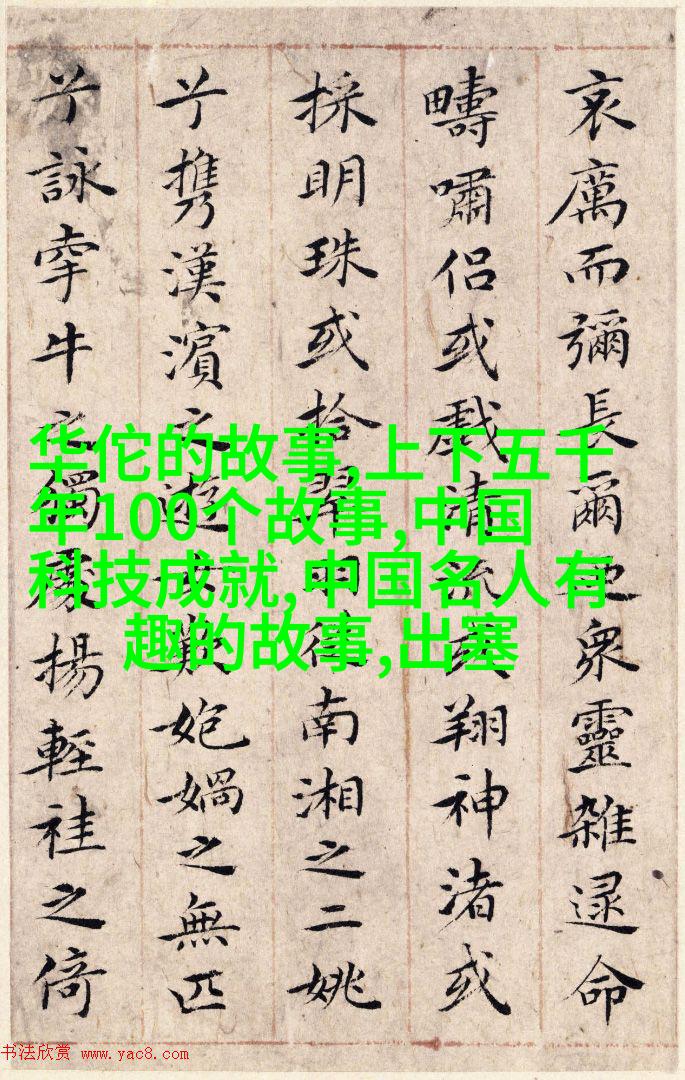 华佗的故事,上下五千
年100个故事,中国
科技成就,中国名人有
趣的故事,出塞
哀厲而彌長爾衆靈雜遝命
疇嘯侶或戲清流或翔神渚或
採明珠或拾翠羽從南湘之二姚
兮攜漢濱之遊女歎媧之無匹
兮詠牽牛之獨處揚輕袿之倚
书法欣赏 www.yac8.com